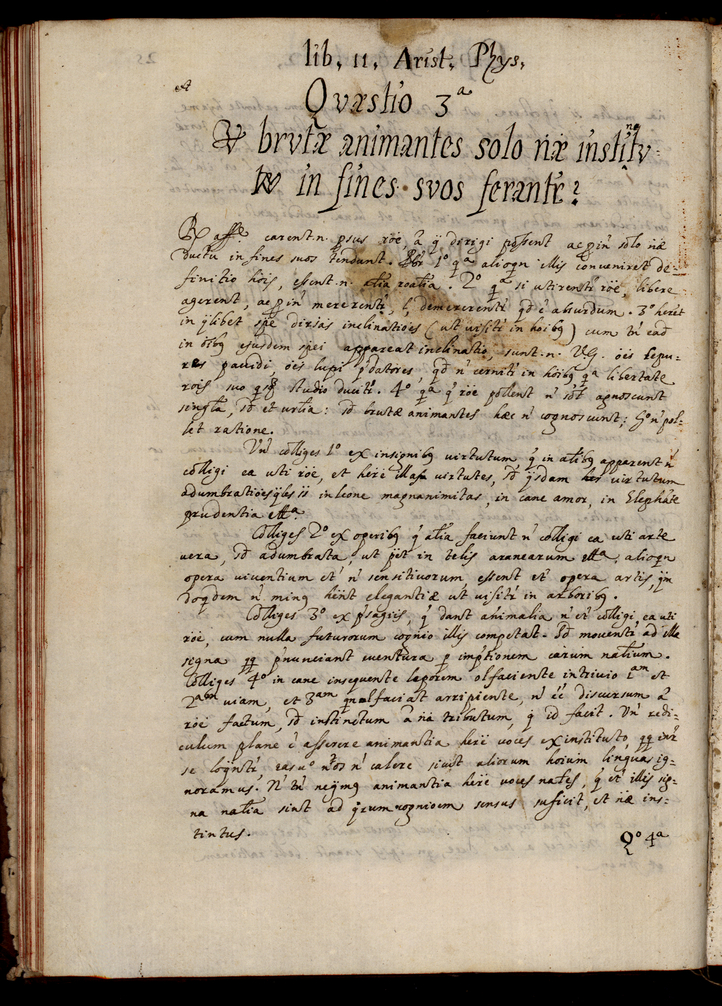 lib, 11, Arist, Phys,
Qvæstio 3ª
brvtæ animantes solo næ institv-
in fines svos ferantr?
carent.n. psus röe, a derigi possent ac pin solo næ
ductu in fines suos tendunt. 1º qª alioqn illis conveniret de-
finitio hois, essent.n. alia roalia. 2º qª si utirentr röe, libere
agerent, ac pin mererentr, l demererentr qd ē absurdum. 3º
in qlibet spē divsas inclinatioēs (ut visitr in hoibq) cum tn ead
in oibq ejusdem spei appareat inclinatio, sunt.n. V.G. oēs lepu-
res pavidi, oēs lupi pdatores, qd n cernitr in hoibq qª libertate
rois suo qsq studio ducitr. 4º qª q röe pollent n agnoscunt
singla, sd et urlia: sd brutæ animantes hæc n cognoscunt; n pol-
let ratione.
Vn colliges 1º ex insignibq virtutum q in alibq apparent n
colligi ea uti röe, et here illas virtutes, sd qsdam virtutum
adumbratioēs in leone magnanimitas, in cane amor, in Elephate
prudentia ettª.
Colliges 2º ex operibq q alia faciunt n colligi ea uti arte
vera, sd adumbrata, ut in telis aranearum ettª, alioqn
opera viventium et n sensitivorum essent et opera artis,
n minq hēnt elegantiæ ut visitr in arboribq.
Colliges 3º ex psagiis, q dant animalia n et colligi, ea uti
röe, cum nulla futurorum cognio illis competat. Sd moventr ad illa
signa pnunciant eventura p imptionem earum natium.
Colliges 4º in cane insequente leporem olfaciente in trivio 1am et
2am viam, et 3am n olfaciat arripiente, n ēē discursum
röe factum, sd instinctum a nä tributum, q id facit. Vn redi-
culum plane ē asserere animantia here voces ex instituto, intr
se loqntr, eas nos n calere sicut aliorum hoium linguas ig-
noramus. N tn negmq animantia here voces nales, q et illis sig-
na nalia sint ad qrum cognioem sensus suficit, et næ ins-
tintus.
Qº 4ª